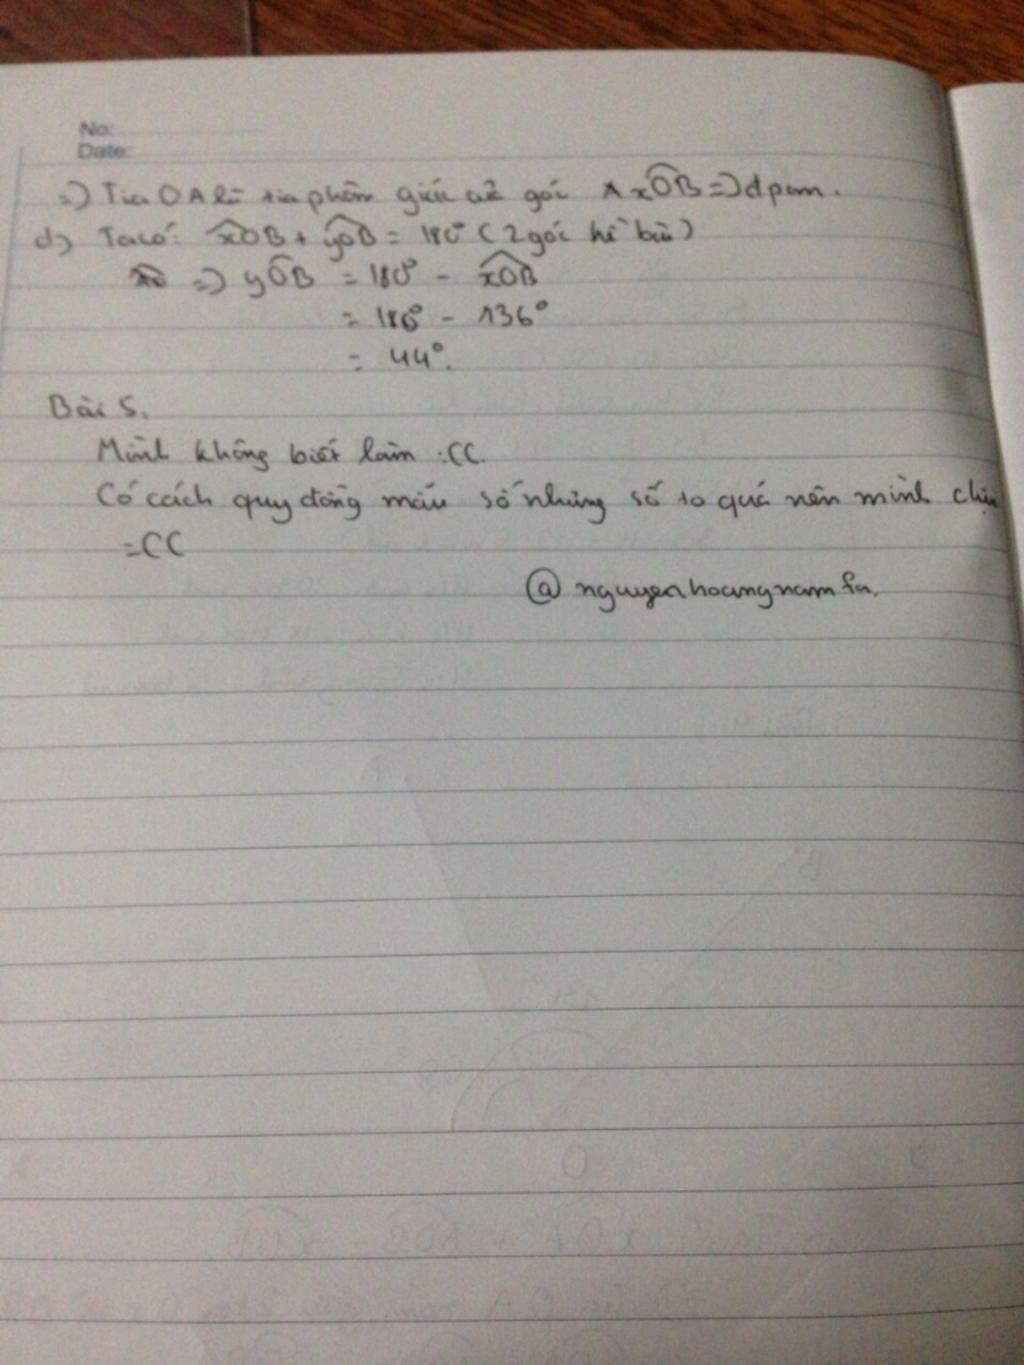 No:
Date:
=) Tia OA là tia phân giác củ góc xOB =) đpcm.
d) Ta có: xOB + yOB = 180° (2 góc kề bù)
=) yOB = 180° - xOB
= 180° - 136°
= 44°.
Bài 5.
Mình không biết làm :CC.
Có cách quy đồng mẫu số nhưng số to quá nên mình chịu
=CC
@ nguyenhoangnam fa.